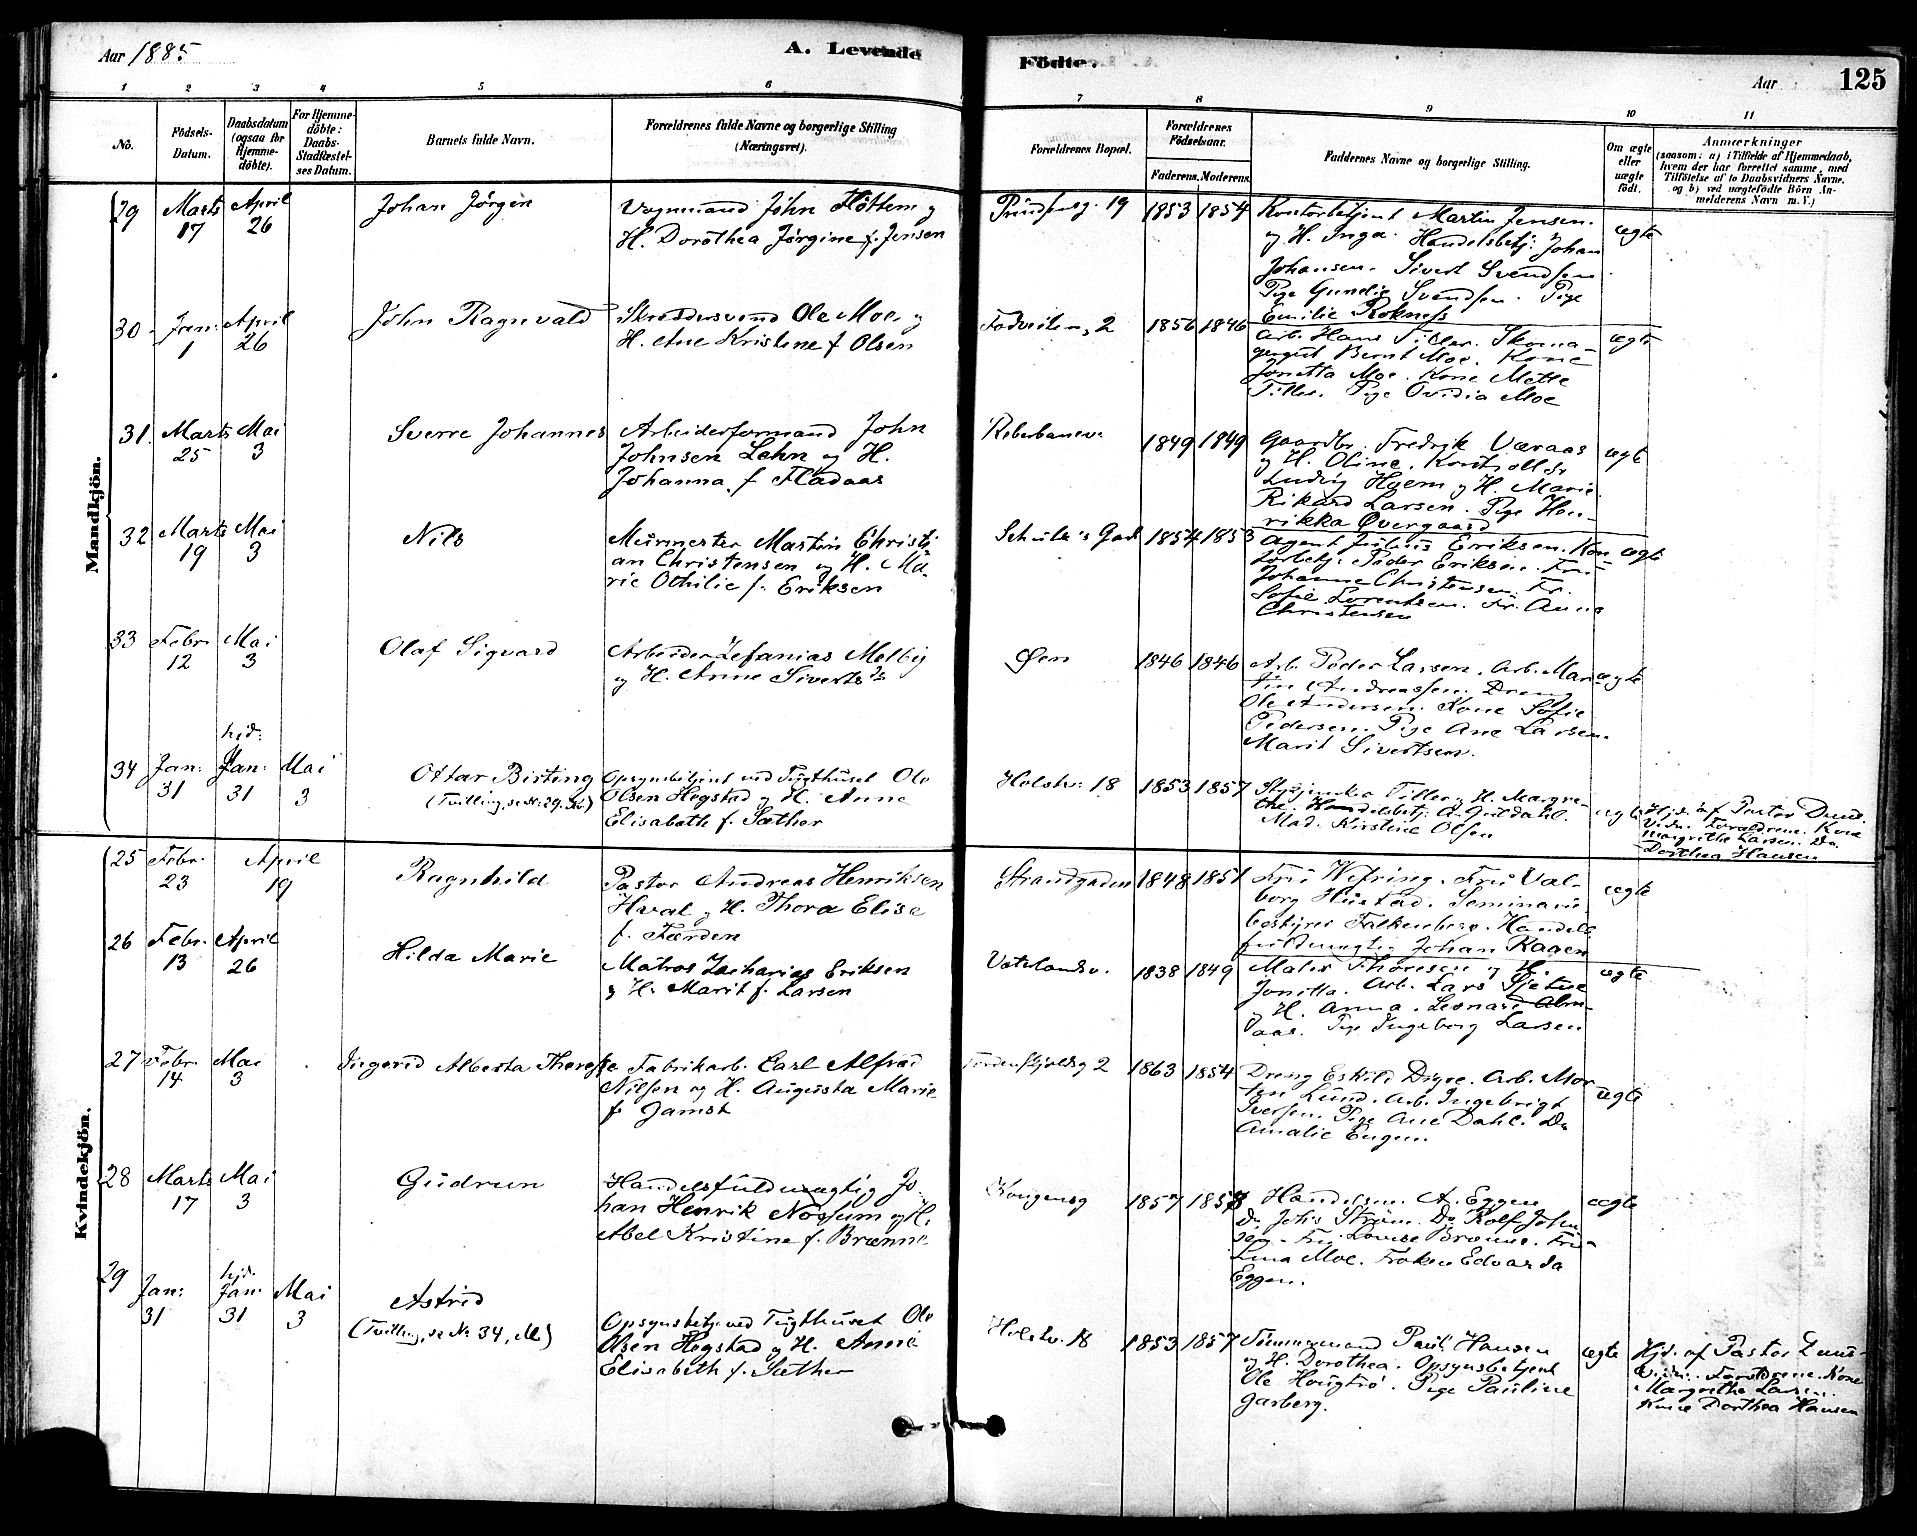 Aar 1885
A. Levende Födte.
Aar
125
1 2 3 4 5 6 7 8 9 10 11
No.
Födsels-Datum.
Daabsdatum (ogsaa for Hjemmedöbte).
For Hjemmedöbte: Daabs-Stadfæstelses Datum.
Barnets fulde Navn.
Forældrenes fulde Navne og borgerlige Stilling (Næringsvei).
Forældrenes Bopæl.
Forældrenes Födselsaar.
Faderens. Moderens.
Faddernes Navne og borgerlige Stilling.
Om ægte eller uægte födt.
Anmærkninger
(saasom: a) i Tilfælde af Hjemmedaab, hvem der har forrettet samme, med Tilföielse af to Daabsvidners Navne, og b) ved uægtefödte Börn Anmelderens Navn m. V.)
Mandkjön.
29 Marts 17 April 26
Johan Jørgen
Vognmand John Flöttem og
H. Dorothea Jørgine f. Jensen
1853 1854
Kontorbetjent Martin Jensen
og H. Inga. Handelsbetj. Johan
Johansen. Sivert Svendsen
Pige Gundie Svendsen. Pige
Emilie Rokness
ægte
30 Jan: 1 April 26
John Ragnvald
Skrædersvend Ole Moe og
H. Ane Kristine f Olsen
1856 1846
Arb. Hans Tiller. Skoma-
gersvd Bernt Moe. Kone
Jonetta Moe. Kone Mette
Tiller. Pige Ovidia Moe
ægte
31. Marts 25 Mai 3
Sverre Johannes
Arbeiderformand John
Johnsen Lehn og H.
Johanna f Fladaas
Reberbanev.
1849 1849
Gaardbr. Fredrik Væraas
og H. Oline.
Ludvig Hyem og H. Marie
Rikard Larsen. Pige Hen-
rikka Øvergaard
ægte
32 Marts 19 Mai 3
Nils
Murmester Martin Christi
an Christensen og H. Ma-
rie Othilie f. Eriksen
Schulz's Gad
1854 1853
Agent Julius Eriksen. Kon
torbetj. Peder Eriksen. Fru
Johanne Christensen. Fr.
Sofie Lorentsen. Fr. Anna
Christensen
ægte
33 Febr. 12 Mai 3
Olaf Sigvard
Arbeider Zefanias Melby
og H. Anne Siverts
Øen
1846 1846
Arb. Peder Larsen. Arb. Mar
tin Andreassen. Dreng
Ole Andersen. Kone Sofie
Pedersen. Pige Ane Larsen.
Marit Sivertsen.
ægte
34 Jan: 31 hjd: Jan: 31 Mai 3
Ottar Birting
(Tvilling, se No: 29. Kv.)
Opsynsbetjent ved Tugthuset Ole
Olsen Hegstad og H. Anne
Elisabeth f. Sæther
Holstv: 18
1853 1857
Tiller og H. Margre-
the. Handelsbetj. A. Guldahl.
Mad. Kirstine Olsen
ægte
Hjd. af Pastor Dund.
Vidn. Forældrene. Kone
Margrethe Larsen. Do
Dorthea Hansen
Kvindekjön.
25 Febr. 23 April 19
Ragnhild
Pastor Andreas Henriksen
Hval og H. Thora Elise
f. Færden
Strandgaden
1848 1851
Fru Wefring. Fru Val-
borg Hustad. Seminarie
bestyrer Falkenberg. Handels
fuldmægtig Johan Kaaen
ægte
26 Febr. 13 April 26
Hilda Marie
Matros Zacharias Eriksen
og H. Marit f. Larsen
Vaterlandsv.
1838 1849
Maler Thoresen og H.
Jonetta. Arb. Lars Sjetne
og H. Anna. Leonard Alm-
aas. Pige Ingeborg Larsen
ægte
27 Febr. 14 Mai 3
Ingerid Alberta Therese
Fabrikarb. Carl Alfred
Nilsen og H. Augusta Marie
f. Jamst
Tordenskjoldsg 2
1863 1854
Dreng Eskild Digre. Arb. Mor
ten Lund. Arb. Ingebrigt
Iversen. Pige Ane Dahl. Do
Amalie Engen.
ægte
28 Marts 17 Mai 3
Gudrun
Handelsfuldmægtig Jo
han Henrik Nossum og H.
Abel Kristine f. Brænne
Kongensg
1857 1858
Handelsm. A. Eggen
Do Johs Strøm. Do Rolf John
sen. Fru Lovise Brænne. Fru
Lina Moe. Frøken Edvarda
Eggen.
ægte
29 Jan: 31 hjd. Jan: 31 Mai 3
Astrid
(Tvilling, se No 34, M)
Opsynsbetj. ved Tugthuset Ole
Olsen Hegstad og H. Anne
Elisabeth f. Sæther
Holstv. 18
1853 1857
Tømmermand Paul Hansen
og H. Dorothea. Opsynsbetjent
Ole Hougtrø. Pige Pauline
Garberg.
ægte
Hjd. af Pastor
Vidn. Forældrene. Kone
Margrethe Larsen.
Kone Dorthea Hansen